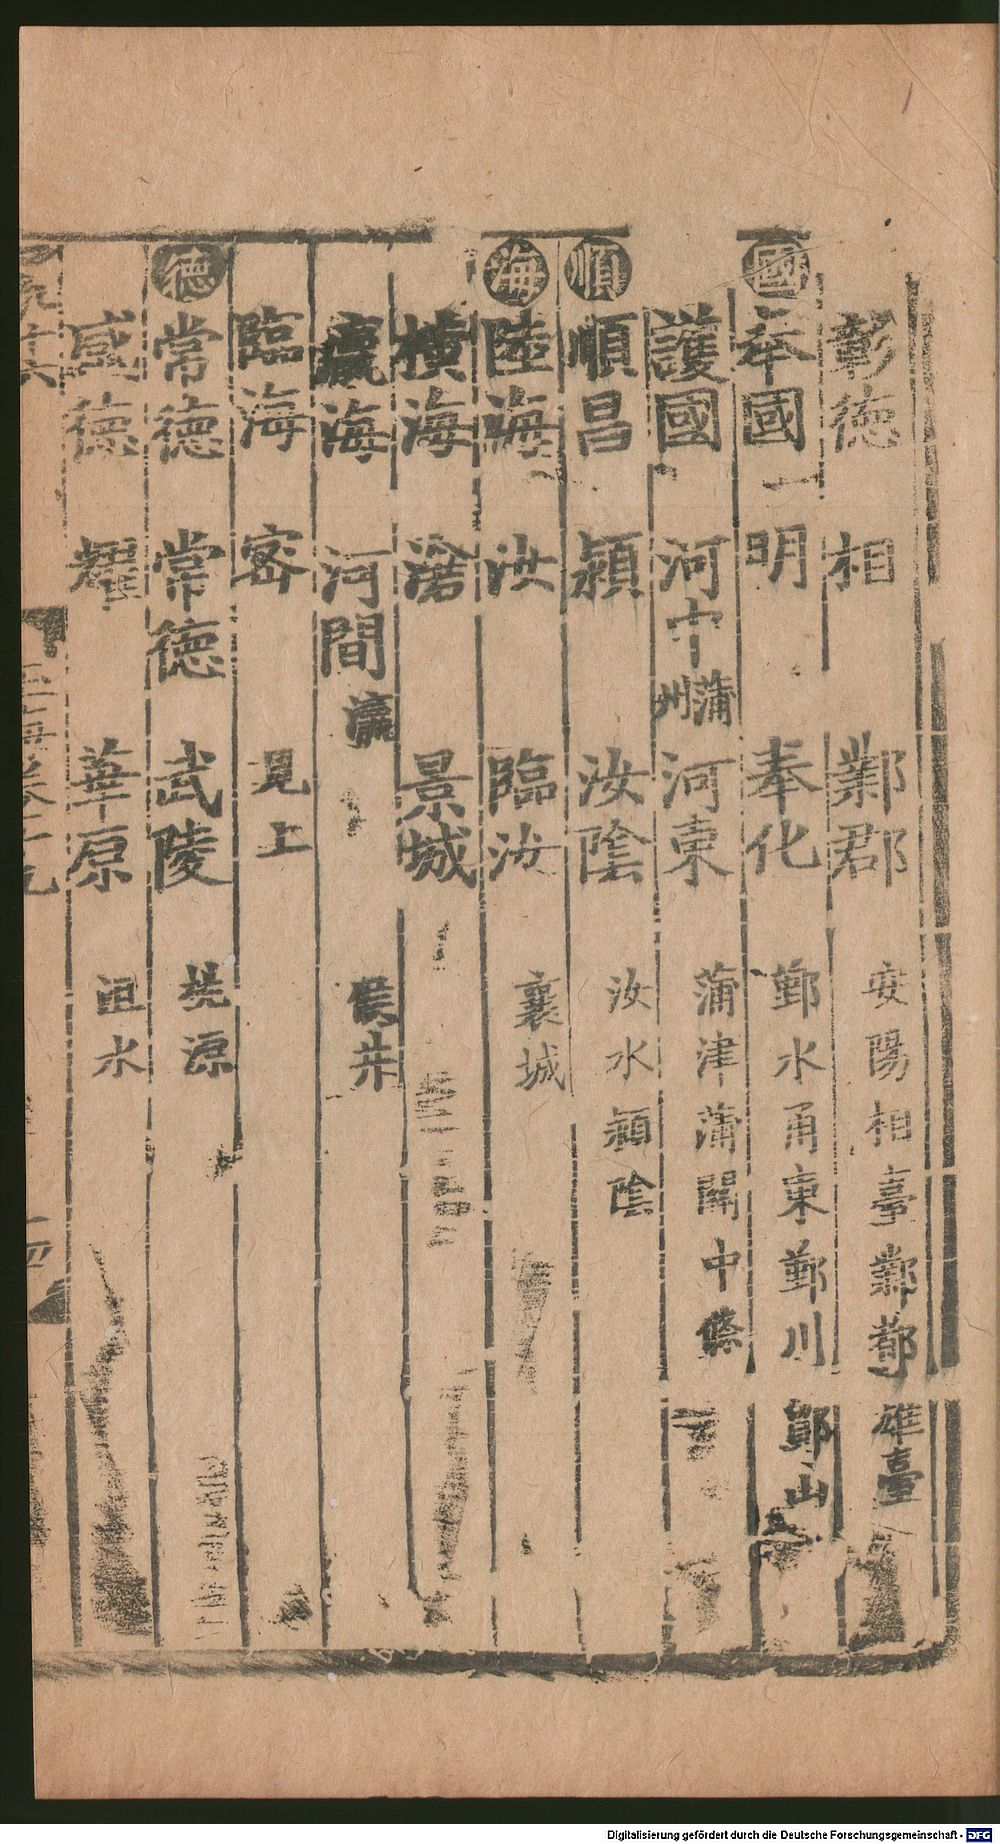 彰德 相 鄴郡 安陽相臺鄴都雄臺
國 奉國 明 奉化 鄞水甬東鄞川鄮山
護國 河中 蒲州 河東 蒲津蒲關中條
順 順昌 潁 汝陰 汝水潁陰
海 陸海 汝 臨汝 襄城
橫海 滄 景城
瀛海 河間 瀛
臨海 密 見上
德 常德 常德 武陵 桃源
感德 耀 華原 沮水
Digitalisierung gefördert durch die Deutsche Forschungsgemeinschaft - DFG